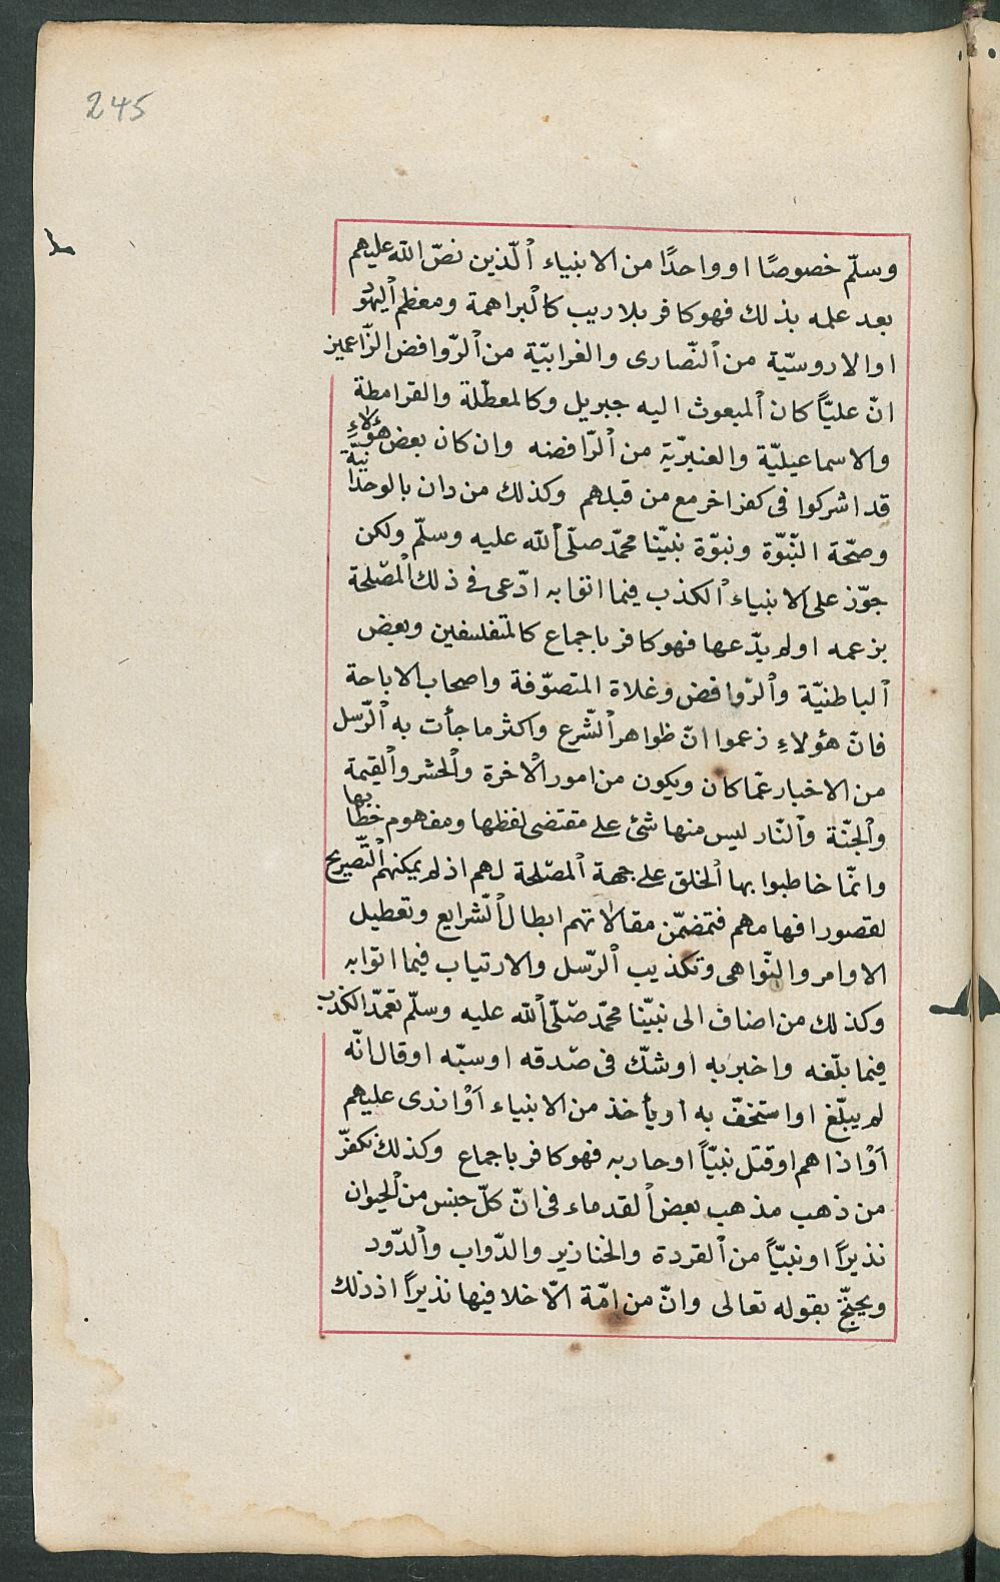 245
وسلّم خصوصًا او واحدًا من الانبياء ٱلّذين نصّ الله عليهم
بعد علمه بذلك فهو كافر بلا ريب كالبراهمة ومعظم اليهو
او الاروسيّة من ٱلنّصارى والغرابيّة من ٱلرّوافض الزّاعمين
انّ عليّاً كان ٱلمبعوث اليه جبريل وكالمعطّلة والقرامطة
والاسماعيليّة والعنبريّة من ٱلرّافضه وان كان بعض هؤلاءِ
قد اشركوا فى كفر اخر مع من قبلهم وكذلك من دان بالوحدانيّة
وصحّة النّبوّة ونبوّة نبيّنا محمّد صلّى ٱلله عليه وسلّم ولكن
جوّز على الانبياء ٱلكذب فيما اتوا به ادّعى فى ذلك ٱلمصلحة
بزعمه او لم يدّعها فهو كافر باجماع كالمتفلسفين وبعض
ٱلباطنيّة وٱلرّوافض وغلاة المتصوّفة واصحاب الاباحة
فانّ هؤلاءِ زعموا انّ ظواهر ٱلشّرع واكثر ما جأت به ٱلرّسل
من الاخبار عمّا كان ويكون من امور الاخرة وٱلحشر وٱلقيمة
وٱلجنّة وٱلنّار ليس منها شئ على مقتضى لفظها ومفهوم خطابها
وانّما خاطبوا بها ٱلخلق على جهة ٱلمصلحة لهم اذ لم يمكنهم ٱلتّصريح
لقصور افهامهم فتمضمّن مقالاتهم ابطال ٱلشّرايع وتعطيل
الاوامر والنّواهى وتكذيب ٱلرّسل والارتياب فيما اتوا به
وكذلك من اضاف الى نبيّنا محمّد صلّى ٱلله عليه وسلّم تعمّد الكذب
فيما بلّغه واخبر به او شكّ فى صدقه او سبّه او قال انّه
لم يبلّغ او استخفّ به او يأخذ من الانبياء اَوْ ازرى عليهم
اَوْ اذاهم او قتل نبيّاً او حاربه فهو كافر باجماع وكذلك نكفّر
من ذهب مذهب بعض ٱلقدماء فى انّ كلّ جنس من ٱلحيوان
نذيراً او نبيّاً من ٱلقردة والخنازير والدّواب وٱلدّود
ويحتجّ بقوله تعالى وانّ من امّة الّا خلا فيها نذيراً اذ ذلك